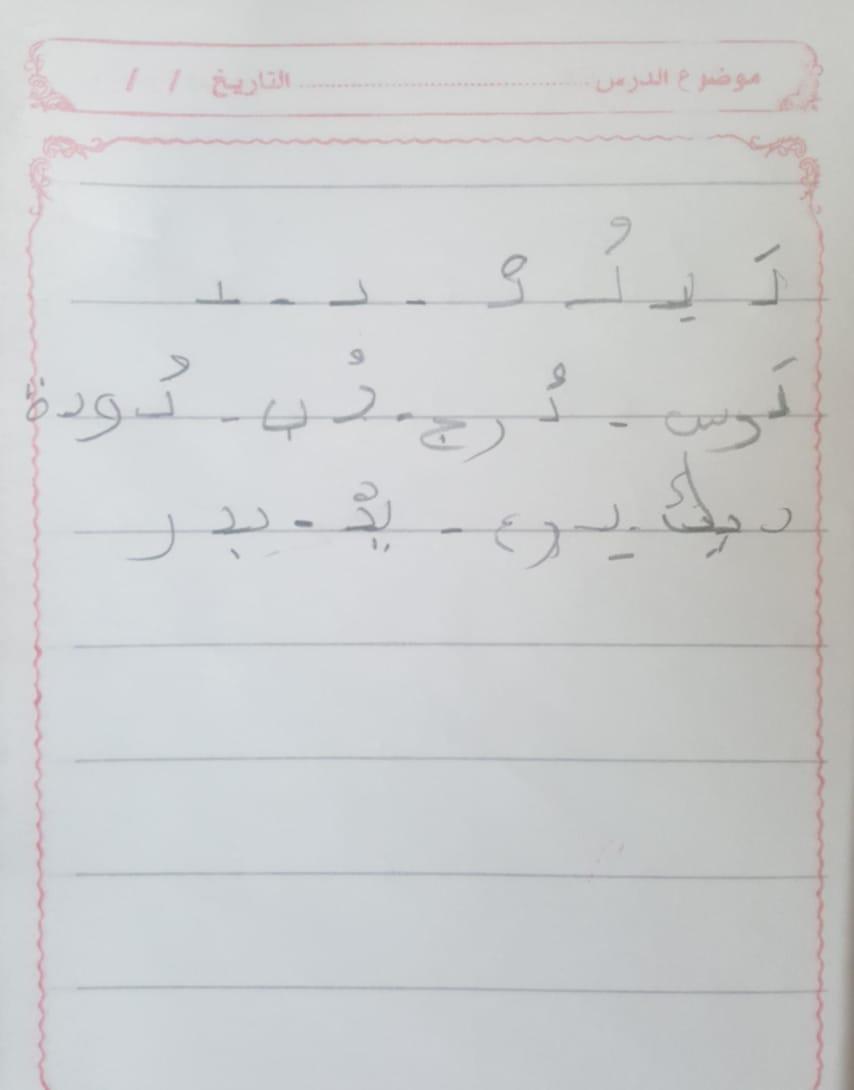 موضوع الدرس ........................ التاريخ / /
دَ دِ دُ دْ - د - ـد
دَرس - دُرج - دُب - دُودة
ديك - دِرع - يدْ - بدر